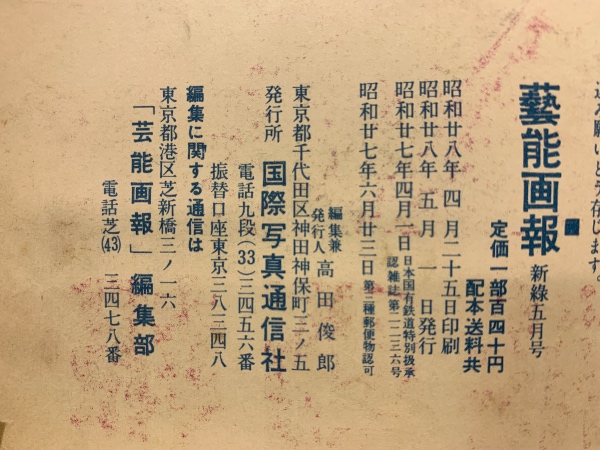 込み願いとう存じます。
藝能画報 新綠五月号
定価一部百四十円
配本送料共
昭和廿八年 四月二十五日印刷
昭和廿八年 五月 一日発行
昭和廿七年四月一日 日本国有鉄道特別扱承認雑誌第二二三六号
昭和廿七年六月廿三日 第三種郵便物認可
編集兼発行人 高田俊郎
東京都千代田区神田神保町三ノ五
発行所 国際写真通信社
電話九段(33)三四五六番
振替口座東京三八三四八
編集に関する通信は
東京都港区芝新橋三ノ一六
「芸能画報」編集部
電話芝(43) 三四七八番